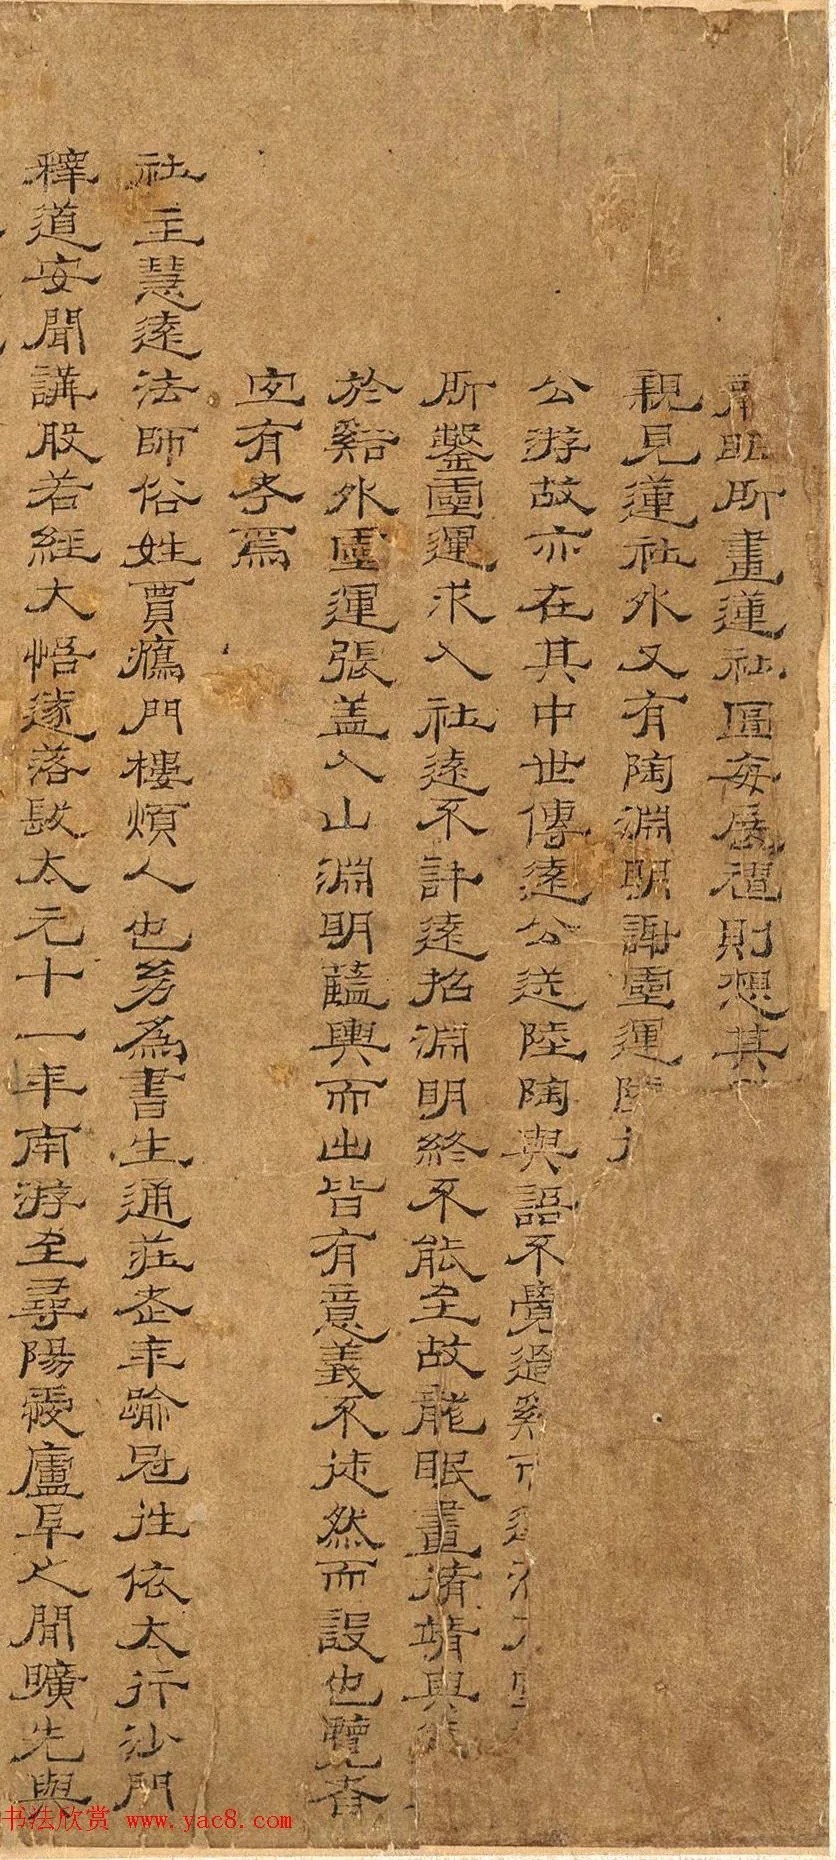 龍眠所畫蓮社圖每展禮則想其
親見蓮社外又有陶淵明謝靈運陸
公游故亦在其中世傳遠公送陸陶與語不覺過谿
所鑿靈運求入社遠不許遠招淵明終不能至故龍眠畫脩靖與
於谿外靈運張盖入山淵明藍輿而出皆有意義不徒然而設也覽者
宜有考焉
社主慧遠法師俗姓賈鴈門樓煩人也努為書生通莊老年踰冠往依太行沙門
釋道安聞講般若經大悟遂落髮太元十一年南游至尋陽愛廬阜之閒曠先與
书法欣赏 www.yac8.com